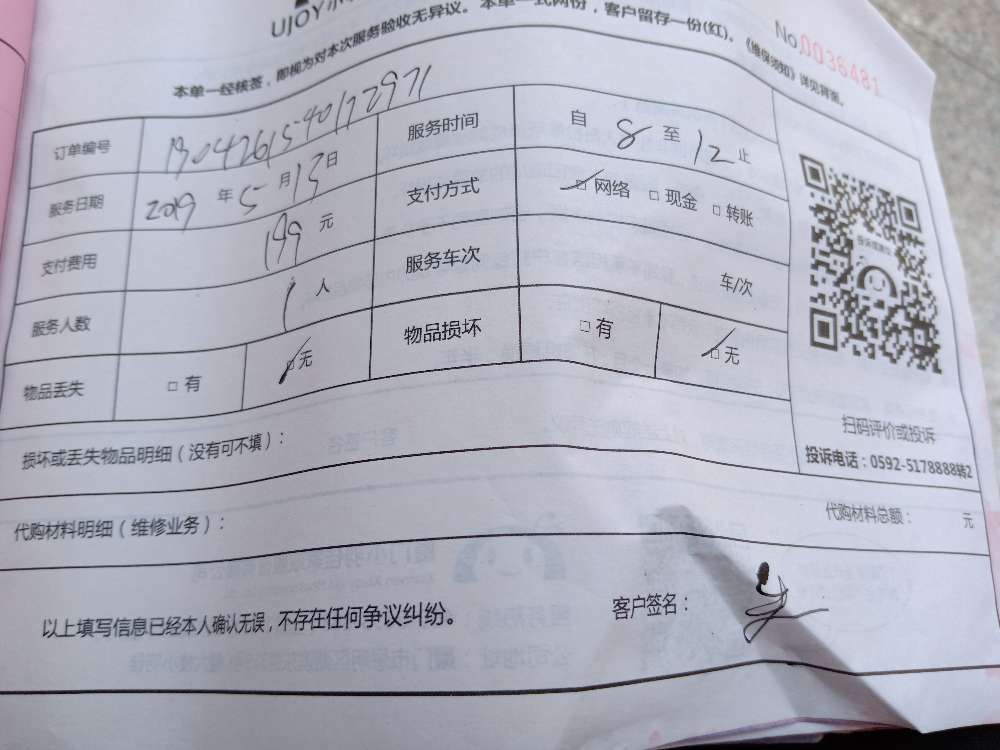 UJOY
本单一经核签，即视为对本次服务验收无异议。本单一式两份，客户留存一份(红)。《维保须知》详见背面。
No.0036481
订单编号 1904261540172971 服务时间 自 8 至 12 止
服务日期 2019 年 5 月 13 日 支付方式 □ 网络 □ 现金 □ 转账
支付费用 199 元 服务车次 车/次
服务人数 1 人
物品丢失 □ 有 □ 无 物品损坏 □ 有 □ 无
扫码评价或投诉
投诉电话：0592-5178888转2
损坏或丢失物品明细（没有可不填）：
代购材料明细（维修业务）： 代购材料总额： 元
以上填写信息已经本人确认无误，不存在任何争议纠纷。 客户签名：